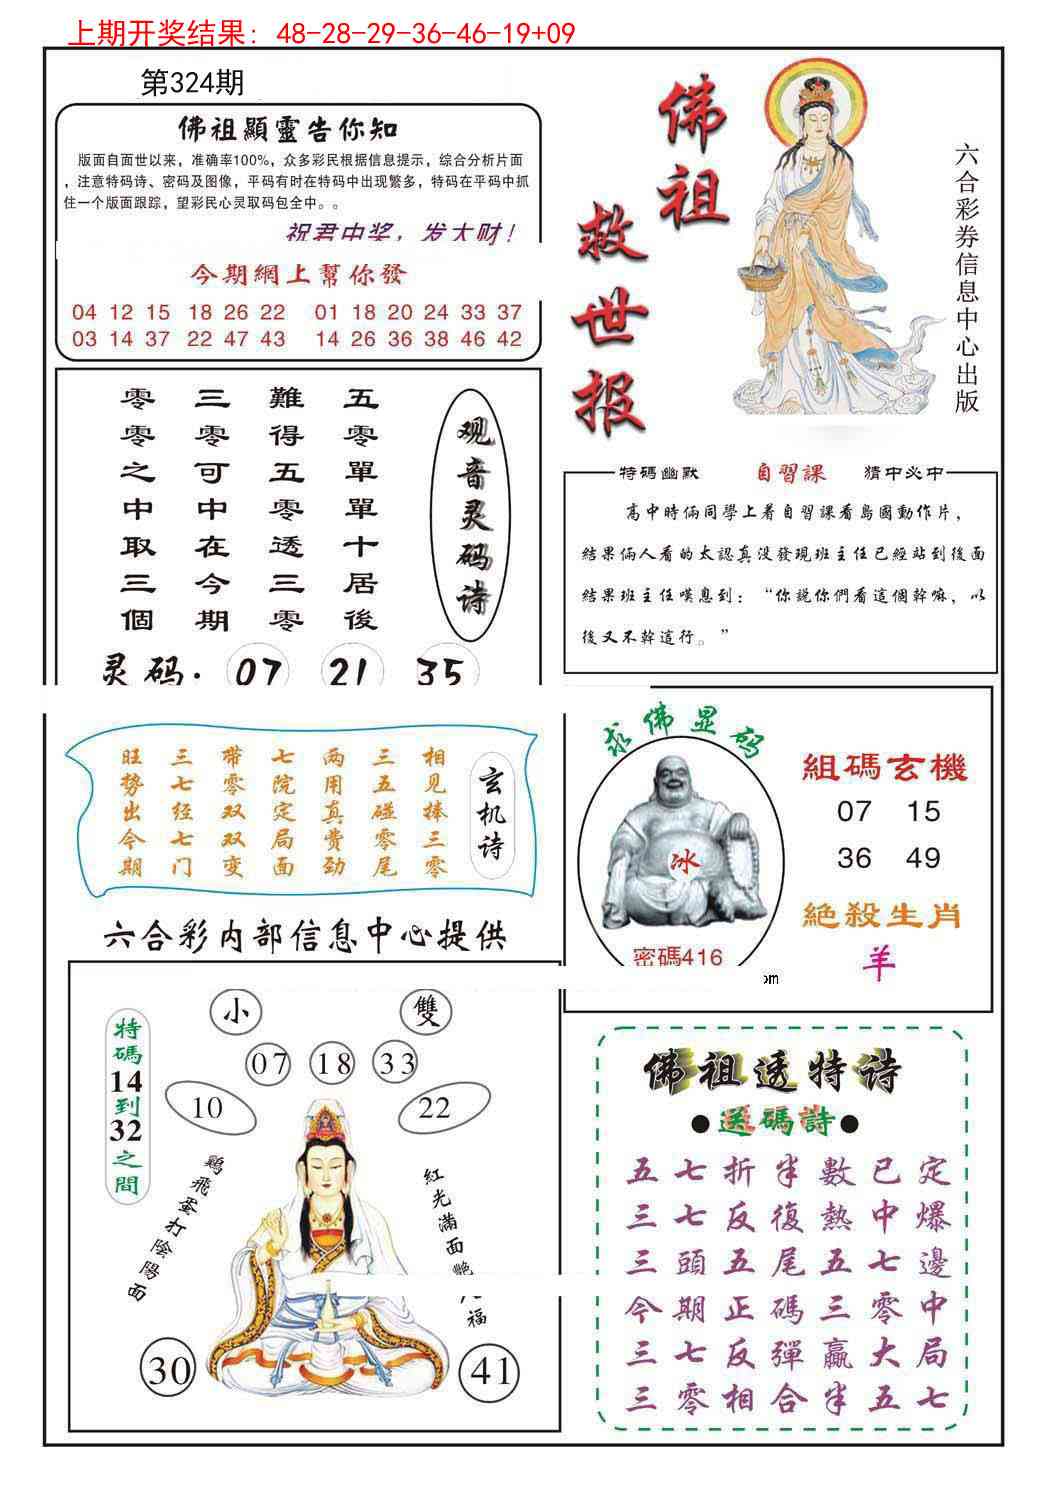 上期开奖结果: 48-28-29-36-46-19+09
第324期
佛祖顯靈告你知
版面自面世以来，准确率100%，众多彩民根据信息提示，综合分析片面
，注意特码诗、密码及图像，平码有时在特码中出现繁多，特码在平码中抓
住一个版面跟踪，望彩民心灵取码包全中。。
祝君中奖，发大财！
今期網上幫你發
04 12 15 18 26 22 01 18 20 24 33 37
03 14 37 22 47 43 14 26 36 38 46 42
佛祖
救世报
六合彩券信息中心出版
观音灵码诗
五零單單十居後
難得五零透三零
三零可中在今期
零零之中取三個
灵码. 07 21 35
特碼幽默 自習課 猜中必中
高中時倆同學上着自習課看島國動作片，
結果倆人看的太認真没發現班主任已經站到後面
結果班主任嘆息到：“你説你們看這個幹嘛，以
後又不幹這行。”
玄机诗
相见捧三零
三五碰零尾
两用真费劲
七院定局面
带零双双变
三七经七门
旺势出今期
六合彩内部信息中心提供
求佛显码
冰
密碼416
組碼玄機
07 15
36 49
絶殺生肖
羊
om
特碼14到32之間
小 雙
07 18 33
10 22
鷄飛蛋打陰陽面
紅光滿面艷福
30 41
佛祖透特诗
●送碼詩●
五七折半數已定
三七反復熱中爆
三頭五尾五七邊
今期正碼三零中
三七反彈贏大局
三零相合半五七